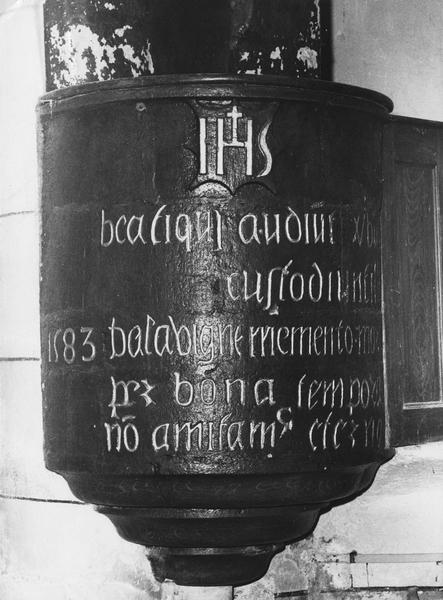 IHS
beatiqui audiut
custodiunt
1583 balavigne memento mo
pr bona tempora
nō amitam⁹ eter